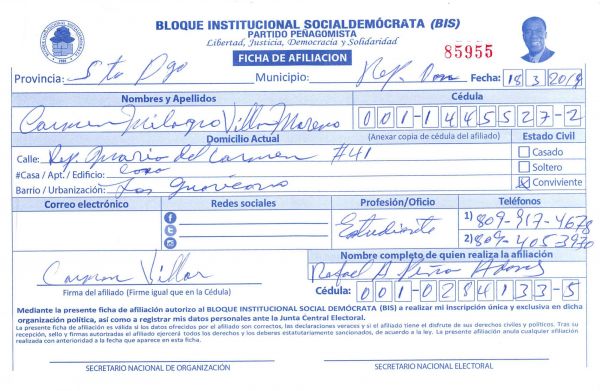 BLOQUE INSTITUCIONAL SOCIALDEMÓCRATA (BIS)
PARTIDO PEÑAGOMISTA
Libertad, Justicia, Democracia y Solidaridad
FICHA DE AFILIACION
85955
Provincia: Sto Dgo Municipio: Rep. Dom Fecha: 18 3 2019
Nombres y Apellidos
Cédula
Carmen Milagro Villar Moreno
001-1445527-2
Domicilio Actual
(Anexar copia de cédula del afiliado)
Estado Civil
Calle: Rep. María del Carmen #41
#Casa / Apt. / Edificio: casa
Barrio / Urbanización: Los
Casado
Soltero
Conviviente
Correo electrónico
Redes sociales
Profesión/Oficio
Teléfonos
Estudiante
1) 809-917-4678
2) 809-405 3970
Carmen Villar
Firma del afiliado (Firme igual que en la Cédula)
Nombre completo de quien realiza la afiliación
Rafael A Peña
Cédula: 001-0284133-5
Mediante la presente ficha de afiliación autorizo al BLOQUE INSTITUCIONAL SOCIAL DEMÓCRATA (BIS) a realizar mi inscripción única y exclusiva en dicha
organización política, así como a registrar mis datos personales ante la Junta Central Electoral.
La presente ficha de afiliación es válida si los datos ofrecidos por el afiliado son correctos, las declaraciones veraces y si el afiliado tiene el disfrute de sus derechos civiles y políticos. Tras su
recepción, sello y firmas autorizadas el afiliado ejercerá todos los derechos y los deberes estatutariamente sancionados, de acuerdo a la ley. La presente afiliación anula cualquier afiliación
realizada con anterioridad a la fecha que aparece en esta ficha.
SECRETARIO NACIONAL DE ORGANIZACIÓN
SECRETARIO NACIONAL ELECTORAL